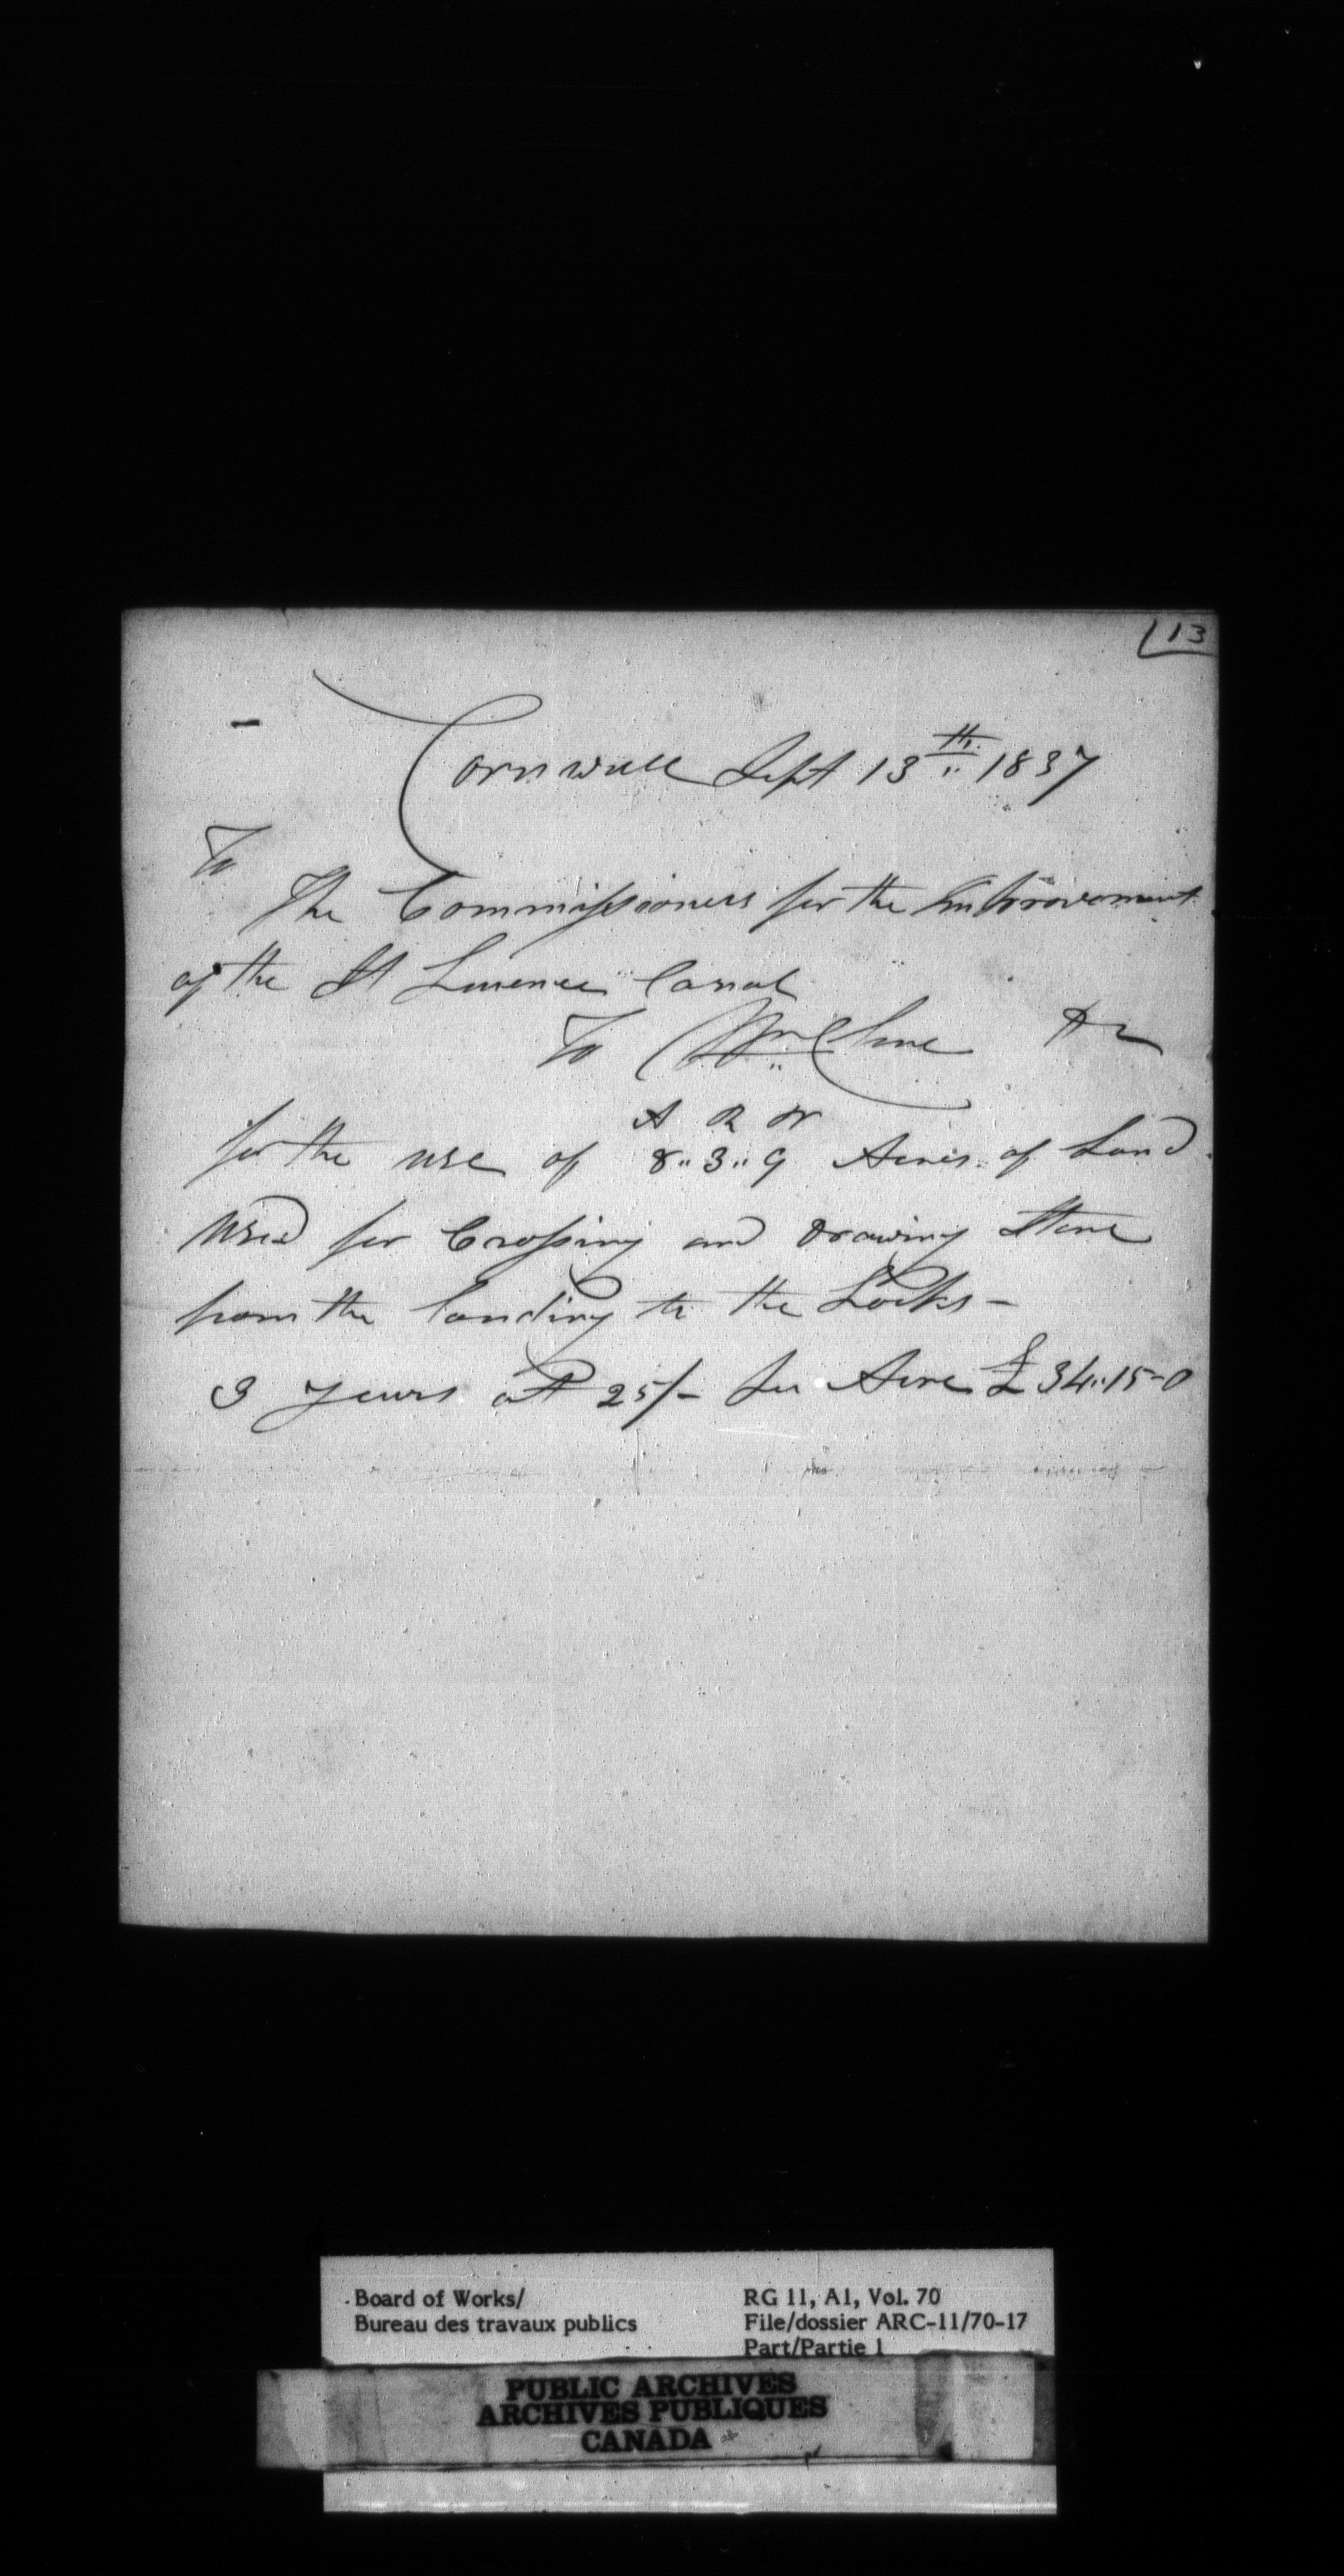 13
Cornwall Sept 13th 1837
To
The Commissioners for the Improvement
of the St Lawrence Canal
To Wm Cline Dr
A R
for the use of 8..3..9 Acres of Land
Used for Crossing and Drawing Stone
from the landing to the Locks -
3 years at 25/- per Acre £34..15-0
Board of Works/
Bureau des travaux publics
RG 11, A1, Vol. 70
File/dossier ARC-11/70-17
Part/Partie 1
PUBLIC ARCHIVES
ARCHIVES PUBLIQUES
CANADA